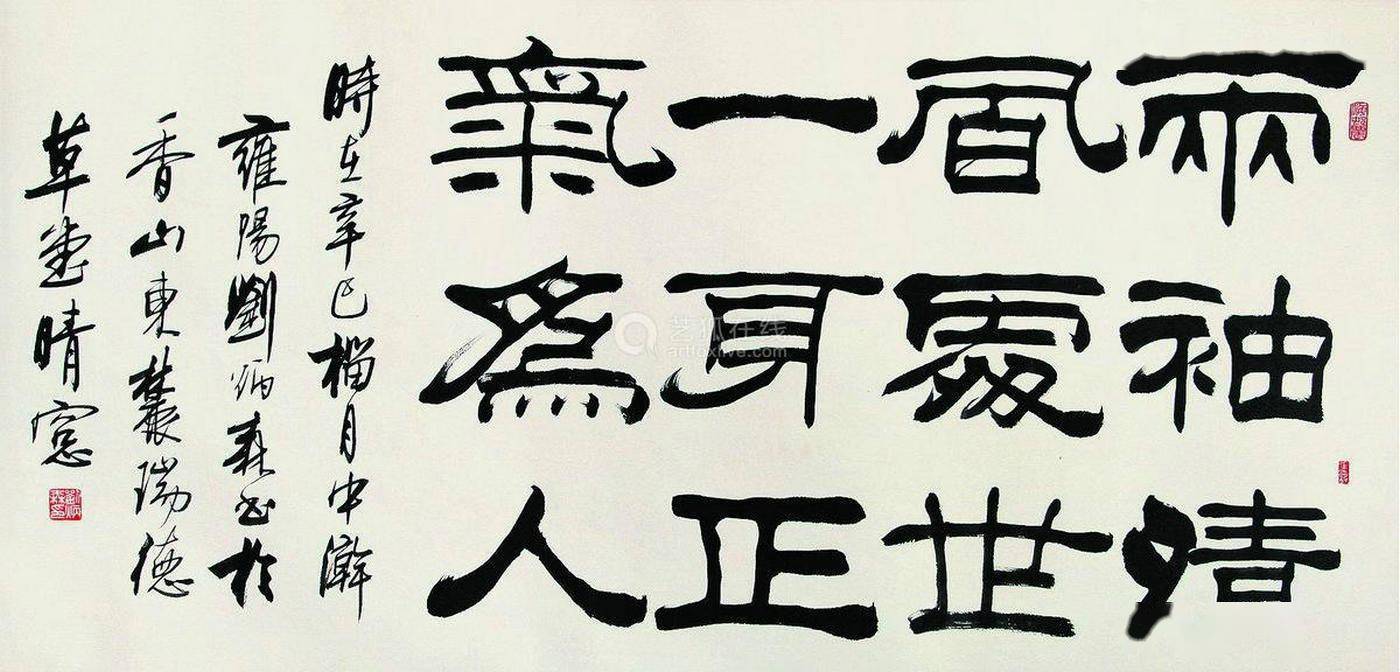 兩袖清
風處世
一身正
氣爲人
時在辛巳榴月中澣
雍陽劉炳森書於
香山東麓瑞德
草堂晴窓
艺狐在线
artfoxlive.com